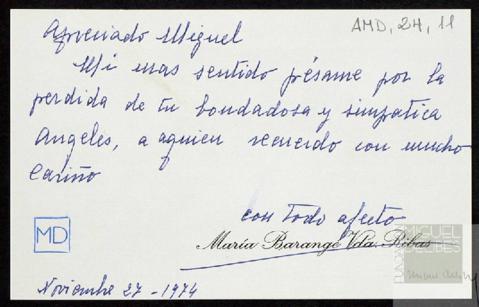 AMD, 24, 11
Apreciado Miguel
Mi mas sentido pésame por la
perdida de tu bondadosa y simpatica
Angeles, a aquien recuerdo con mucho
cariño
con todo afecto
MD
Maria Barangé Vda. Ribas
MIGUEL
DELIBES
FUNDACIÓN
Noviembre 27 - 1974